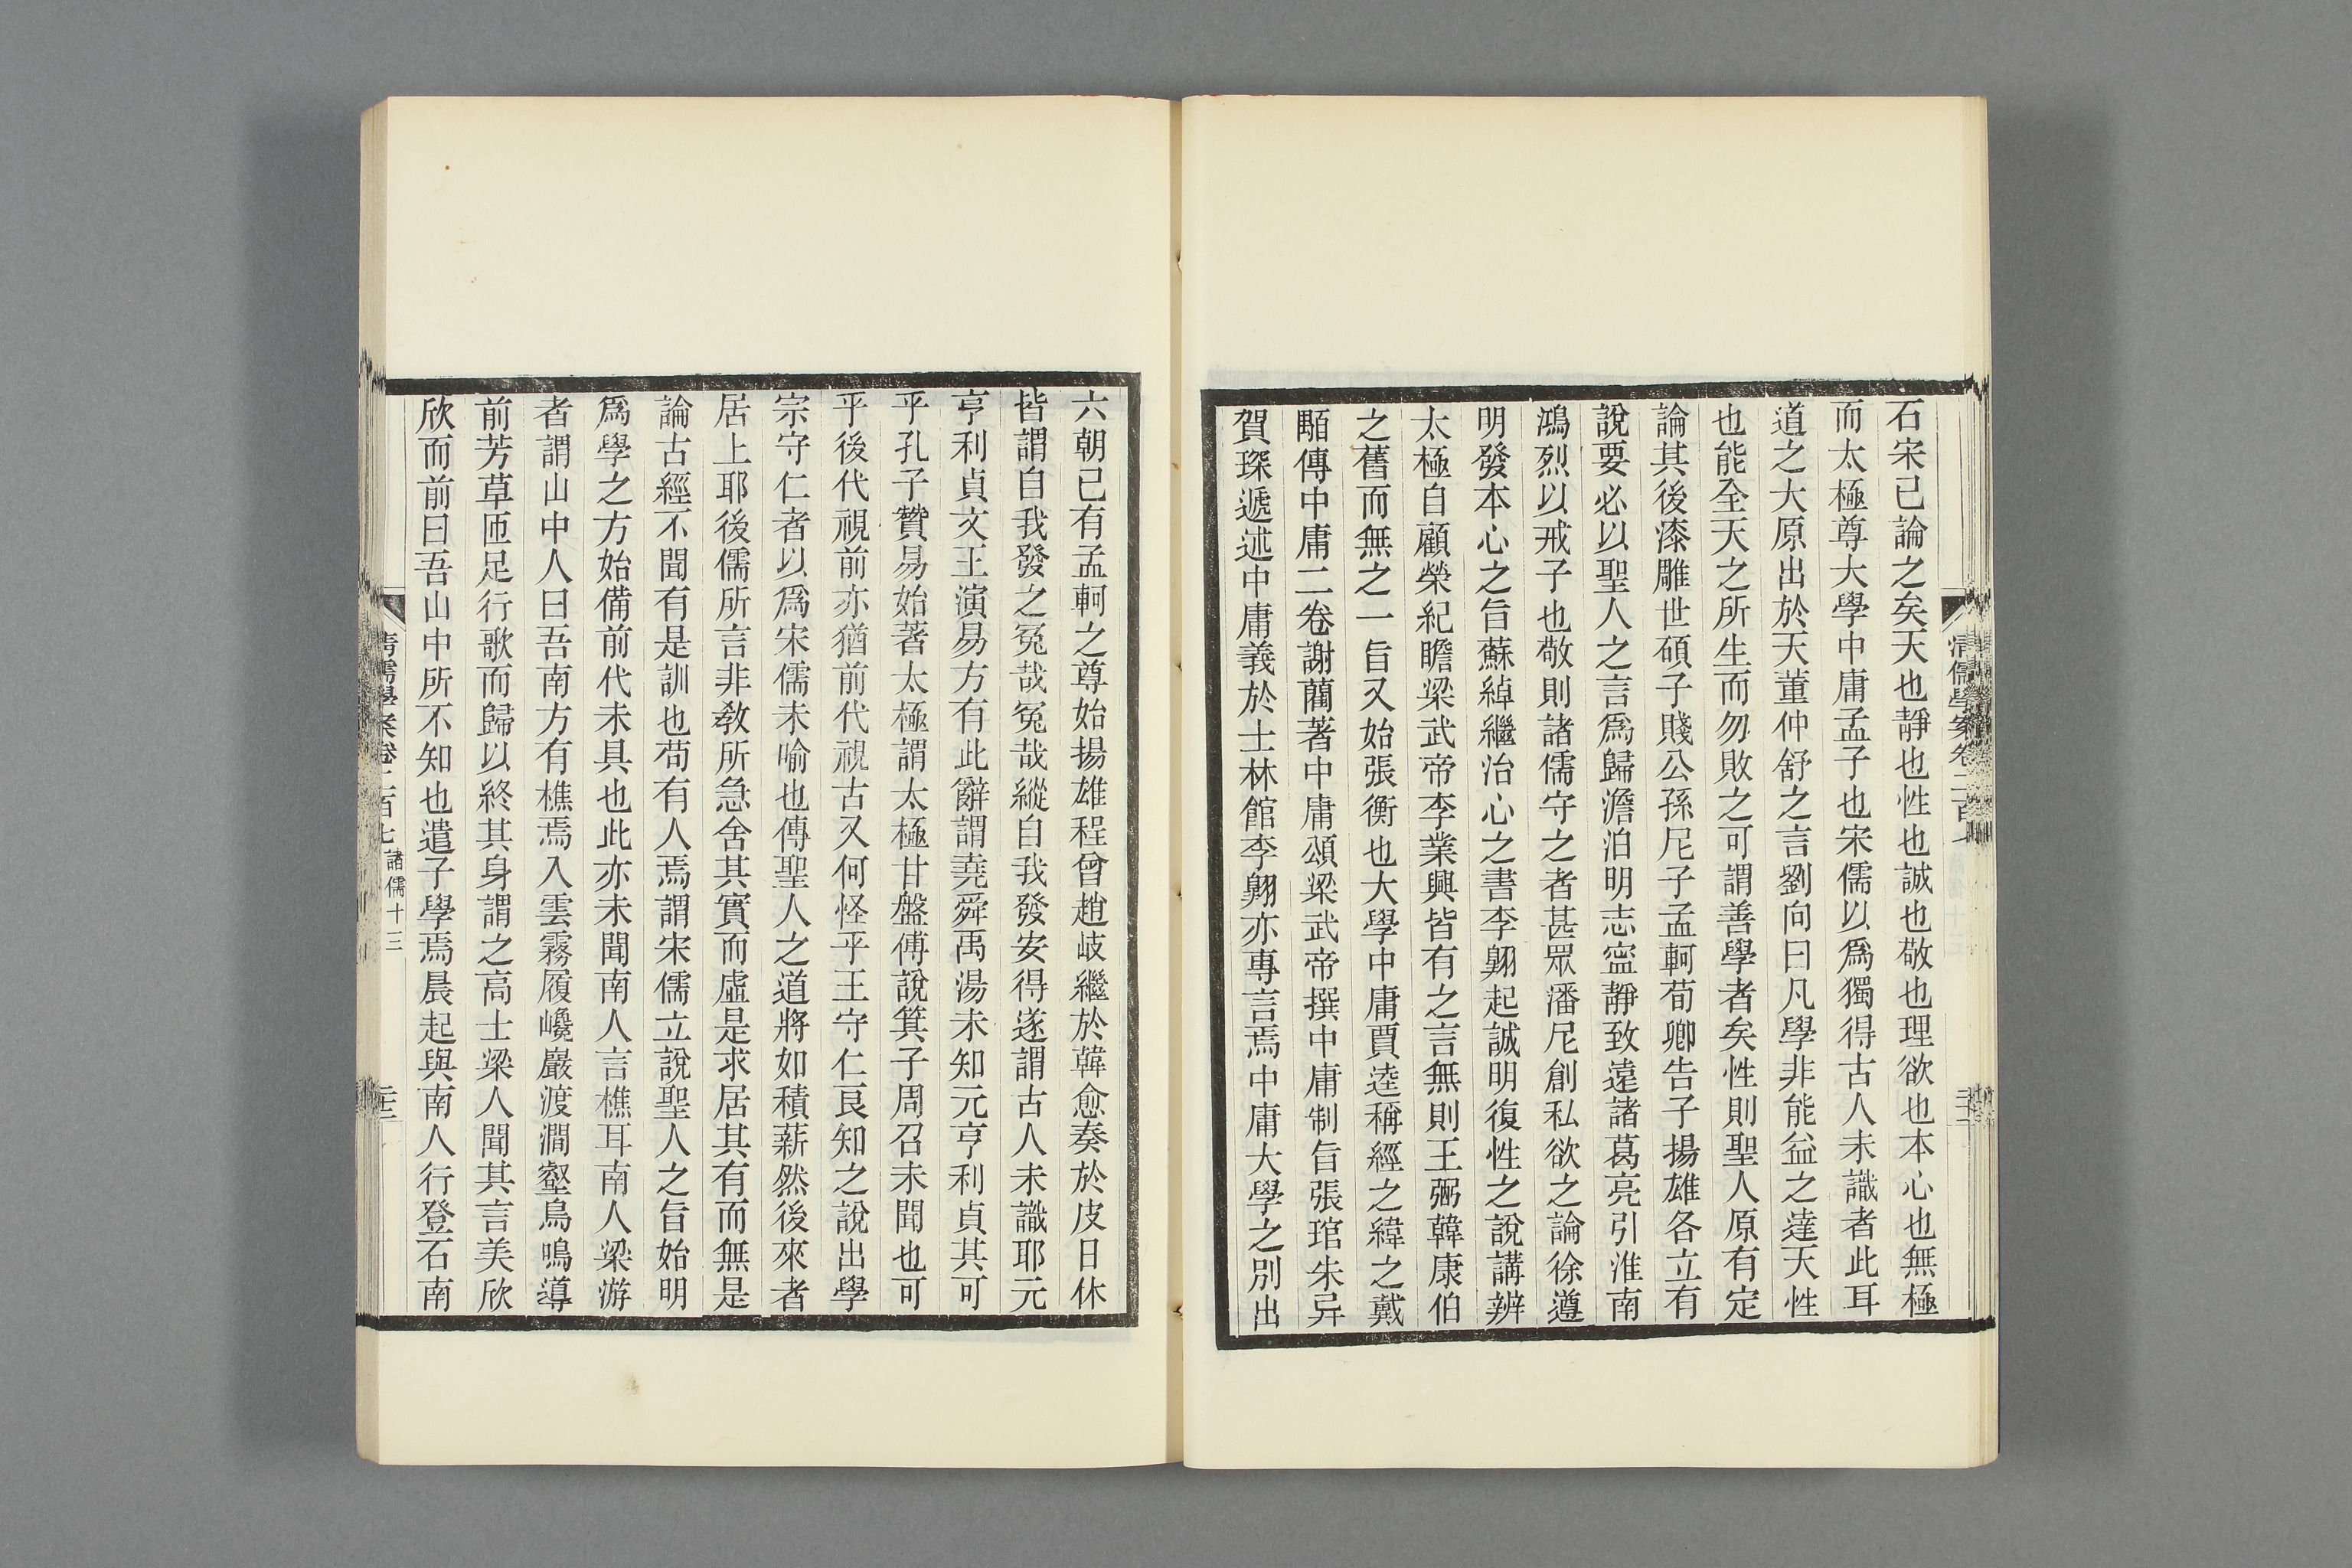 石宋已論之矣天也靜也性也誠也敬也理欲也本心也無極
而太極尊大學中庸孟子也宋儒以爲獨得古人未識者此耳
道之大原出於天董仲舒之言劉向曰凡學非能益之達天性
也能全天之所生而勿敗之可謂善學者矣性則聖人原有定
論其後漆雕世碩子賤公孫尼子孟軻荀卿告子揚雄各立有
說要必以聖人之言爲歸澹泊明志寍靜致遠諸葛亮引淮南
鴻烈以戒子也敬則諸儒守之者甚眾潘尼創私欲之論徐遵
明發本心之旨蘇綽繼治心之書李翺起誠明復性之說講辨
太極自顧榮紀瞻梁武帝李業興皆有之言無則王弼韓康伯
之舊而無之一旨又始張衡也大學中庸賈逵稱經之緯之戴
顒傳中庸二卷謝藺著中庸頌梁武帝撰中庸制旨張琯朱异
賀琛遞述中庸義於士林館李翺亦專言焉中庸大學之別出
六朝已有孟軻之尊始揚雄程曾趙岐繼於韓愈奏於皮日休
皆謂自我發之冤哉冤哉縱自我發安得遂謂古人未識耶元
亨利貞文王演易方有此辭謂堯舜禹湯未知元亨利貞其可
乎孔子贊易始著太極謂太極甘盤傅說箕子周召未聞也可
乎後代視前亦猶前代視古又何怪乎王守仁良知之說出學
宗守仁者以爲宋儒未喻也傳聖人之道將如積薪然後來者
居上耶後儒所言非敎所急舍其實而虛是求居其有而無是
論古經不聞有是訓也苟有人焉謂宋儒立說聖人之旨始明
爲學之方始備前代未具也此亦未聞南人言樵耳南人梁游
者謂山中人曰吾南方有樵焉入雲霧履巉巖渡澗壑鳥鳴導
前芳草匝足行歌而歸以終其身謂之高士梁人聞其言美欣
欣而前曰吾山中所不知也遣子學焉晨起與南人行登石南
清儒學案卷二百七 諸儒十三